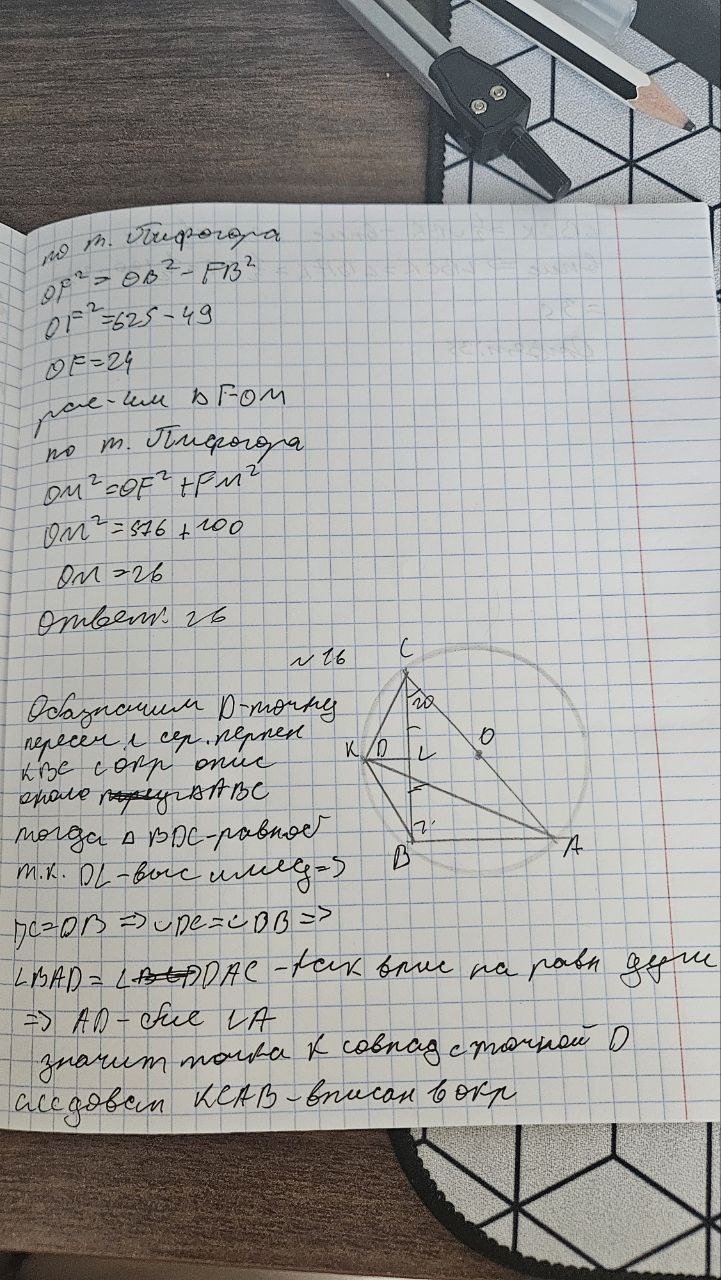 по т. Пифогора
OF² = OB² - FB²
OF² = 625 - 49
OF = 24
рас-им ΔFOM
по т. Пифогора
OM² = OF² + FM²
OM² = 576 + 100
OM = 26
Ответ: 26
№ 16
Обазначим D-точку
пересеч сер. перпен
к BC с окр опис
около ΔABC
тогда Δ BDC-равноб
т.к. DL-выс и мед =>
DC=DB => ∪DC=∪DB =>
∠BAD = ∠DAC - как впис на равн дуги
=> AD - бис ∠A
значит точка K совпад с точкой D
следоват KCAB - вписан в окр
C
20
K
D
L
O
B
A